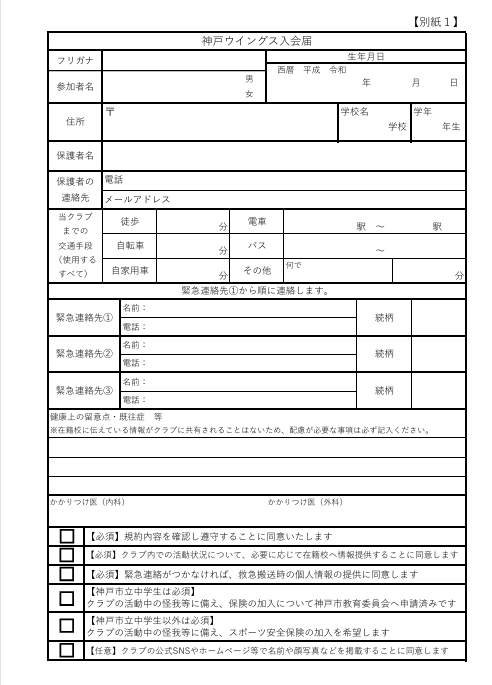 【別紙１】
神戸ウイングス入会届
フリガナ
生年月日
参加者名
男
女
西暦　平成　令和
年　月　日
住所
〒
学校名
学校
学年
年生
保護者名
保護者の
連絡先
電話
メールアドレス
当クラブ
までの
交通手段
（使用する
すべて）
徒歩
分
電車
駅　～　駅
自転車
分
バス
～
自家用車
分
その他
何で
分
緊急連絡先①から順に連絡します。
緊急連絡先①
名前：
電話：
続柄
緊急連絡先②
名前：
電話：
続柄
緊急連絡先③
名前：
電話：
続柄
健康上の留意点・既往症　等
※在籍校に伝えている情報がクラブに共有されることはないため、配慮が必要な事項は必ず記入ください。
かかりつけ医（内科）
かかりつけ医（外科）
【必須】規約内容を確認し遵守することに同意いたします
【必須】クラブ内での活動状況について、必要に応じて在籍校へ情報提供することに同意します
【必須】緊急連絡がつかなければ、救急搬送時の個人情報の提供に同意します
【神戸市立中学生は必須】
クラブの活動中の怪我等に備え、保険の加入について神戸市教育委員会へ申請済みです
【神戸市立中学生以外は必須】
クラブの活動中の怪我等に備え、スポーツ安全保険の加入を希望します
【任意】クラブの公式SNSやホームページ等で名前や顔写真などを掲載することに同意します